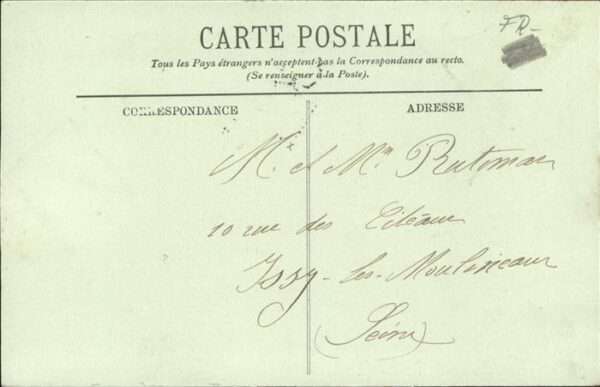 FR-
CARTE POSTALE
Tous les Pays étrangers n'acceptent pas la Correspondance au recto.
(Se renseigner à la Poste).
CORRESPONDANCE
ADRESSE
Mr et Mme
10 rue des
Issy-les-Moulineaux
(Seine)